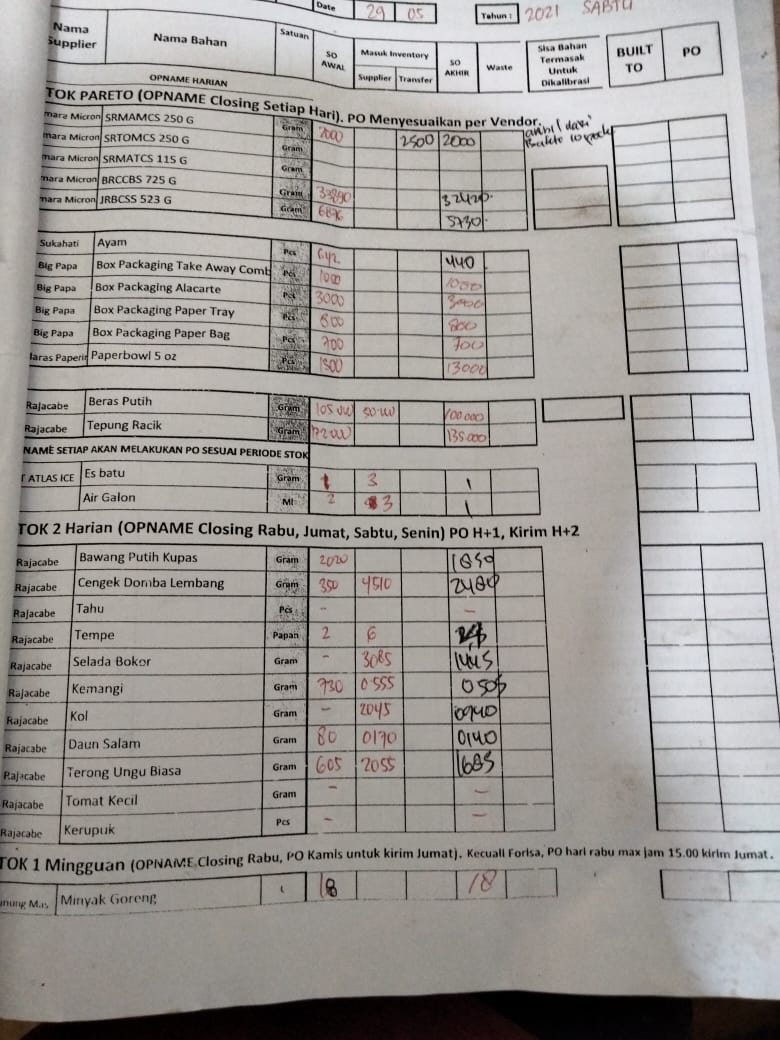 Date 29 05 Tahun : 2021 SABTU
Nama Supplier Nama Bahan Satuan SO AWAL Masuk Inventory Supplier Transfer SO AKHIR Waste Sisa Bahan Termasak Untuk Dikalibrasi BUILT TO PO
OPNAME HARIAN
TOK PARETO (OPNAME Closing Setiap Hari). PO Menyesuaikan per Vendor.
mara Micron SRMAMCS 250 G Gram 2000 2500 2000 ambil dari
mara Micron SRTOMCS 250 G Gram
mara Micron SRMATCS 115 G Gram
mara Micron BRCCBS 725 G Gram 32420
mara Micron JRBCSS 523 G Gram 5730
Sukahati Ayam Pcs 642 440
Big Papa Box Packaging Take Away Comb Pcs 1000 1000
Big Papa Box Packaging Alacarte Pcs 3000 3000
Big Papa Box Packaging Paper Tray Pcs 800 800
Big Papa Box Packaging Paper Bag Pcs 700 700
laras Paperin Paperbowl 5 oz Pcs 1300 13000
Rajacabe Beras Putih Gram 100.000
Rajacabe Tepung Racik Gram 135.000
NAME SETIAP AKAN MELAKUKAN PO SESUAI PERIODE STOK
T ATLAS ICE Es batu Gram 1 3 1
Air Galon Ml 2 3 1
TOK 2 Harian (OPNAME Closing Rabu, Jumat, Sabtu, Senin) PO H+1, Kirim H+2
Rajacabe Bawang Putih Kupas Gram 2020 1850
Rajacabe Cengek Domba Lembang Gram 350 4510 2480
Rajacabe Tahu Pcs - -
Rajacabe Tempe Papan 2 6
Rajacabe Selada Bokor Gram - 3085 1445
Rajacabe Kemangi Gram 730 0555 0505
Rajacabe Kol Gram - 2045 0940
Rajacabe Daun Salam Gram 80 0170 0140
Rajacabe Terong Ungu Biasa Gram 605 2055 1685
Rajacabe Tomat Kecil Gram - -
Rajacabe Kerupuk Pcs - -
TOK 1 Mingguan (OPNAME Closing Rabu, PO Kamis untuk kirim Jumat). Kecuali Forisa, PO hari rabu max jam 15.00 kirim Jumat.
nung Mas Minyak Goreng 18 18